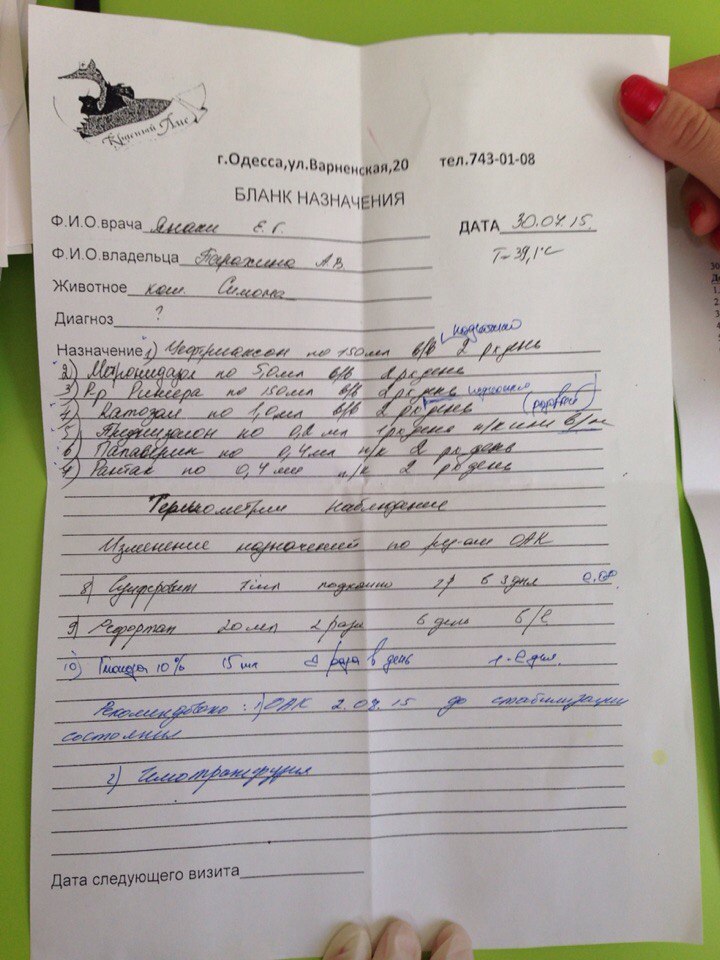 г.Одесса,ул.Варненская,20 тел.743-01-08
БЛАНК НАЗНАЧЕНИЯ
Ф.И.О.врача Е.Г. ДАТА 30.04.15.
Ф.И.О.владельца А.В. T-39,1°C
Животное кош. Симона
Диагноз ?
подкожно
Назначение 1) Цефтриаксон по 150мл в/в 2 р день
2) Метронидазол по 5,0мл в/в 2 р день
3) Р-р Рингера по 150мл в/в 2 р день
4) Катозал по 1,0мл в/в 2 р день
5) по 0,2 мл 1 р день п/к или в/м
6) Папаверин по 0,4мл п/к 2 р день
7) Рантак по 0,4мл п/к 2 р день
Термометрия наблюдение
Изменение назначений по рез-там ОАК
8) 1мл подкожно 1р в 3 дня
9) Рефортан 20мл 2 раза в день в/в
10) Глюкоза 10% 15мл 2 раза в день
Рекомендовано: 1) ОАК 2.04.15 до стабилизации
состояния
2) Гемотрансфузия
Дата следующего визита